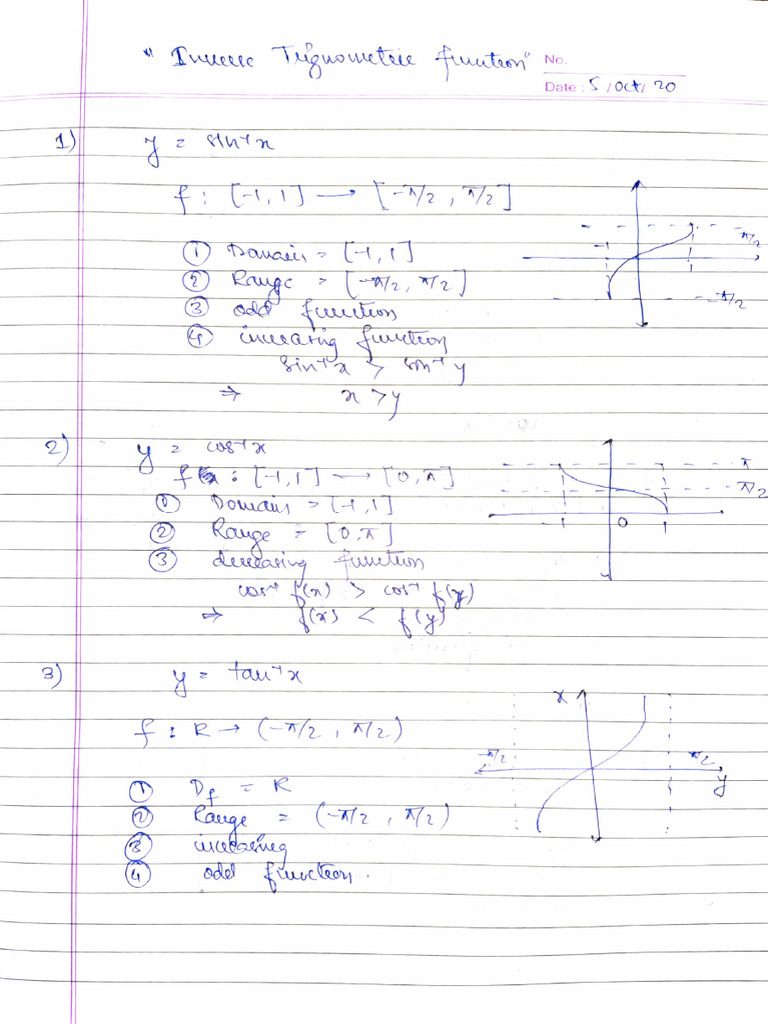 "Inverse Trignometric function"
No.
Date : 5 / Oct / 20
1) y = sin⁻¹x
f : [-1, 1] → [-π/2, π/2]
① Domain = [-1, 1]
② Range = [-π/2, π/2]
③ odd function
④ increasing function
sin⁻¹x > sin⁻¹y
⇒ x > y
π/2
-1
-π/2
2) y = cos⁻¹x
f : [-1, 1] → [0, π]
① Domain = [-1, 1]
② Range = [0, π]
③ decreasing function
cos⁻¹ f(x) > cos⁻¹ f(y)
⇒ f(x) < f(y)
π
π/2
-1 0 1
3) y = tan⁻¹x
f : R → (-π/2, π/2)
① Df = R
② Range = (-π/2, π/2)
③ increasing
④ odd function.
x
-π/2 π/2
y